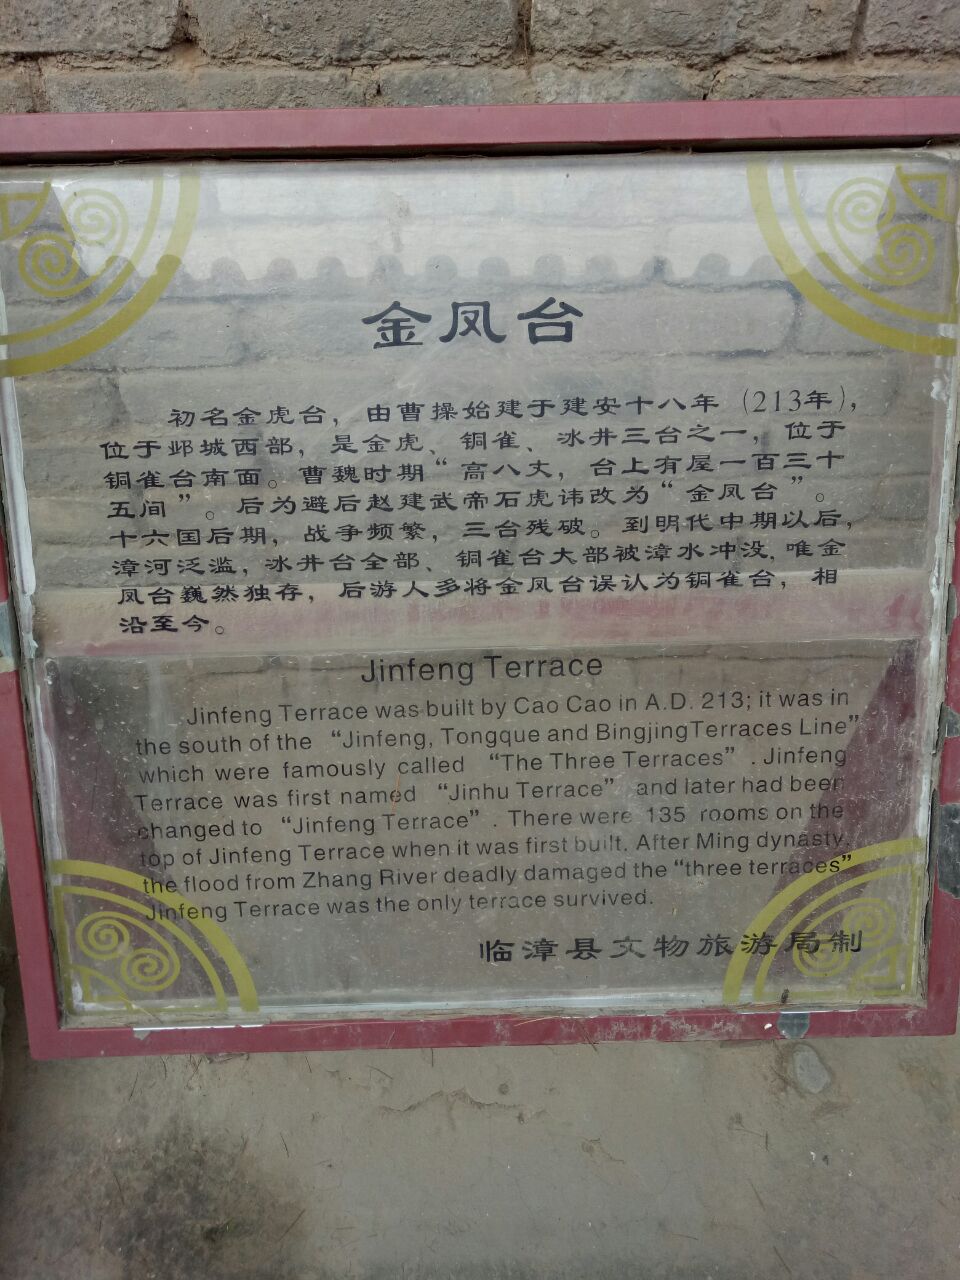 金凤台
初名金虎台，由曹操始建于建安十八年（213年），
位于邺城西部，是金虎、铜雀、冰井三台之一，位于
铜雀台南面。曹魏时期“高八丈，台上有屋一百三十
五间”。后为避后赵建武帝石虎讳改为“金凤台”。
十六国后期，战争频繁，三台残破。到明代中期以后，
漳河泛滥，冰井台全部、铜雀台大部被漳水冲没，唯金
凤台巍然独存，后游人多将金凤台误认为铜雀台，相
沿至今。
Jinfeng Terrace
Jinfeng Terrace was built by Cao Cao in A.D. 213; it was in
the south of the “Jinfeng, Tongque and BingjingTerraces Line”
which were famously called “The Three Terraces” . Jinfeng
Terrace was first named “Jinhu Terrace” and later had been
changed to “Jinfeng Terrace” . There were 135 rooms on the
top of Jinfeng Terrace when it was first built. After Ming dynasty,
the flood from Zhang River deadly damaged the “three terraces”
Jinfeng Terrace was the only terrace survived.
临漳县文物旅游局制